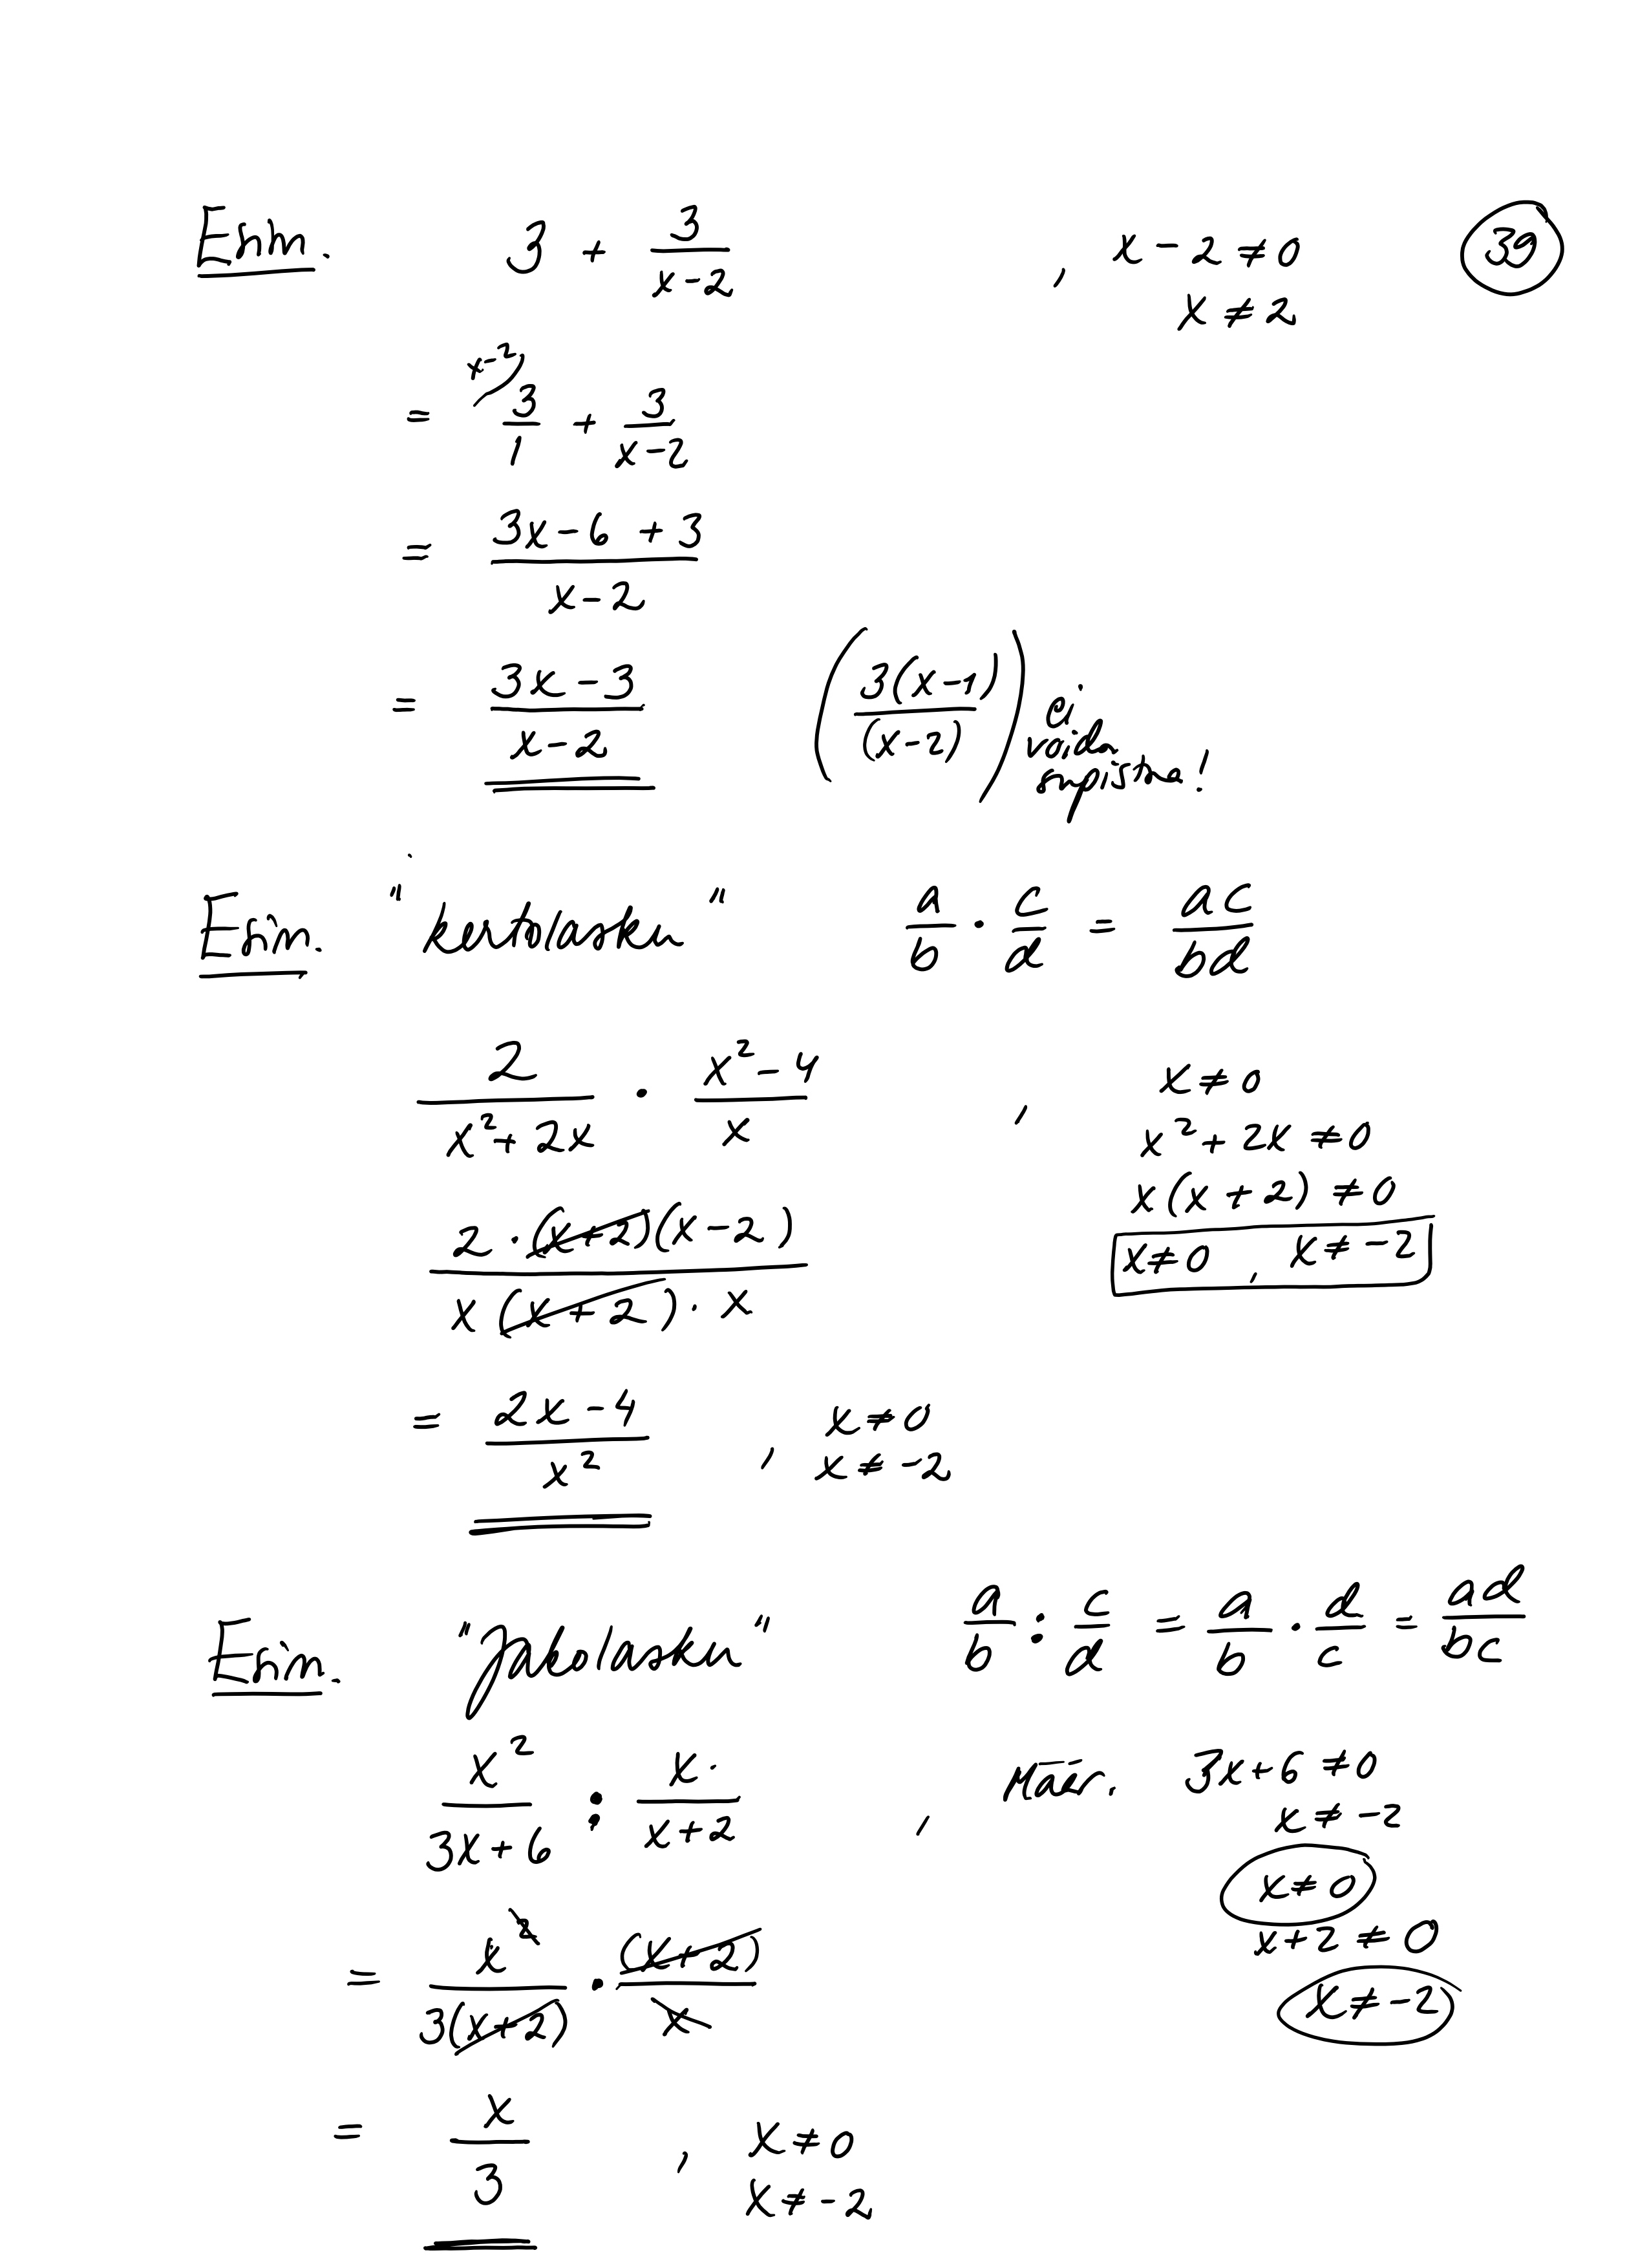 Esim. 3 + 3/(x-2) , x-2 ≠ 0 39
x ≠ 2
= x-2) 3/1 + 3/(x-2)
= (3x-6+3)/(x-2)
= (3x-3)/(x-2) (3(x-1)/(x-2)) ei voida supistaa!
Esim. "kertolasku" a/b · c/d = ac/bd
2/(x²+2x) · (x²-4)/x , x ≠ 0
x²+2x ≠ 0
x(x+2) ≠ 0
2·(x+2)(x-2)/(x(x+2)·x) x ≠ 0 , x ≠ -2
= (2x-4)/x² , x ≠ 0
x ≠ -2
Esim. "Jakolasku" a/b : c/d = a/b · d/c = ad/bc
x²/(3x+6) : x/(x+2) , Määr. 3x+6 ≠ 0
x ≠ -2
x ≠ 0
x+2 ≠ 0
= x²/(3(x+2)) · (x+2)/x x ≠ -2
= x/3 , x ≠ 0
x ≠ -2